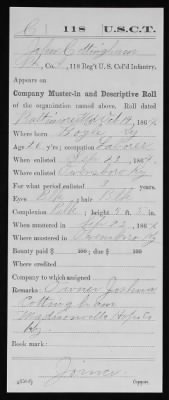 C | 118 | U.S.C.T.
John Cottingham
Co. , 118 Reg't U. S. Col'd Infantry.
Appears on
Company Muster-in and Descriptive Roll
of the organization named above. Roll dated
Oct 19, 186
Where born Ky
Age y'rs; occupation Laborer
When enlisted Sep 23, 1864
Where enlisted Owensboro Ky
For what period enlisted 3 years.
Eyes Blk ; hair Blk
Complexion ; height 5 ft. 5 in.
When mustered in Sep 23, 186
Where mustered in Owensboro Ky
Bounty paid $ 100; due $ 100
Where credited
Company to which assigned
Remarks: Owner Joshua
Cottingham
Madisonville Hopkins
Ky.
Book mark:
Joines
Copyist.